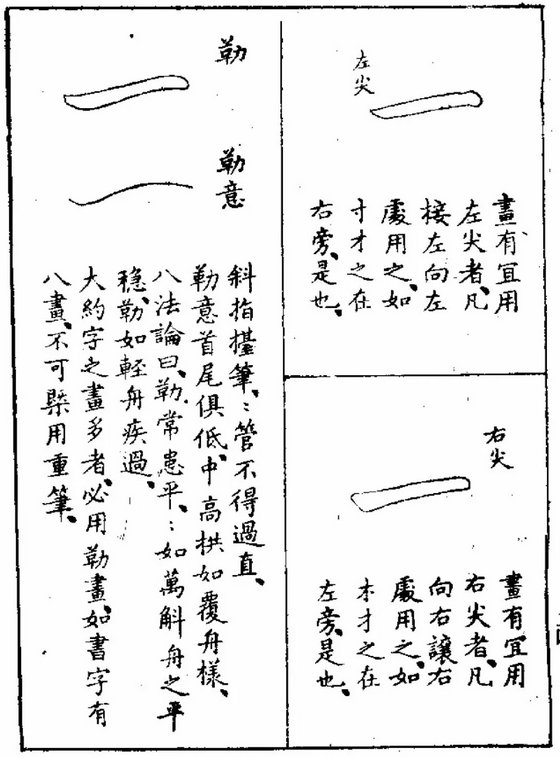 左尖
畫有宜用
左尖者、凡
接左向左
處用之、如
寸才之在
右旁、是也、
右尖
畫有宜用
右尖者、凡
向右讓右
處用之、如
木才之在
左旁、是也、
勒
勒意
斜指擡筆、︰管不得過直、
勒意首尾俱低、中高拱如覆舟樣、
八法論曰、勒常患平、︰如萬斛舟之平
穩、勒如輕舟疾過、
大約字之畫多者、必用勒畫、如書字有
八畫、不可槩用重筆、